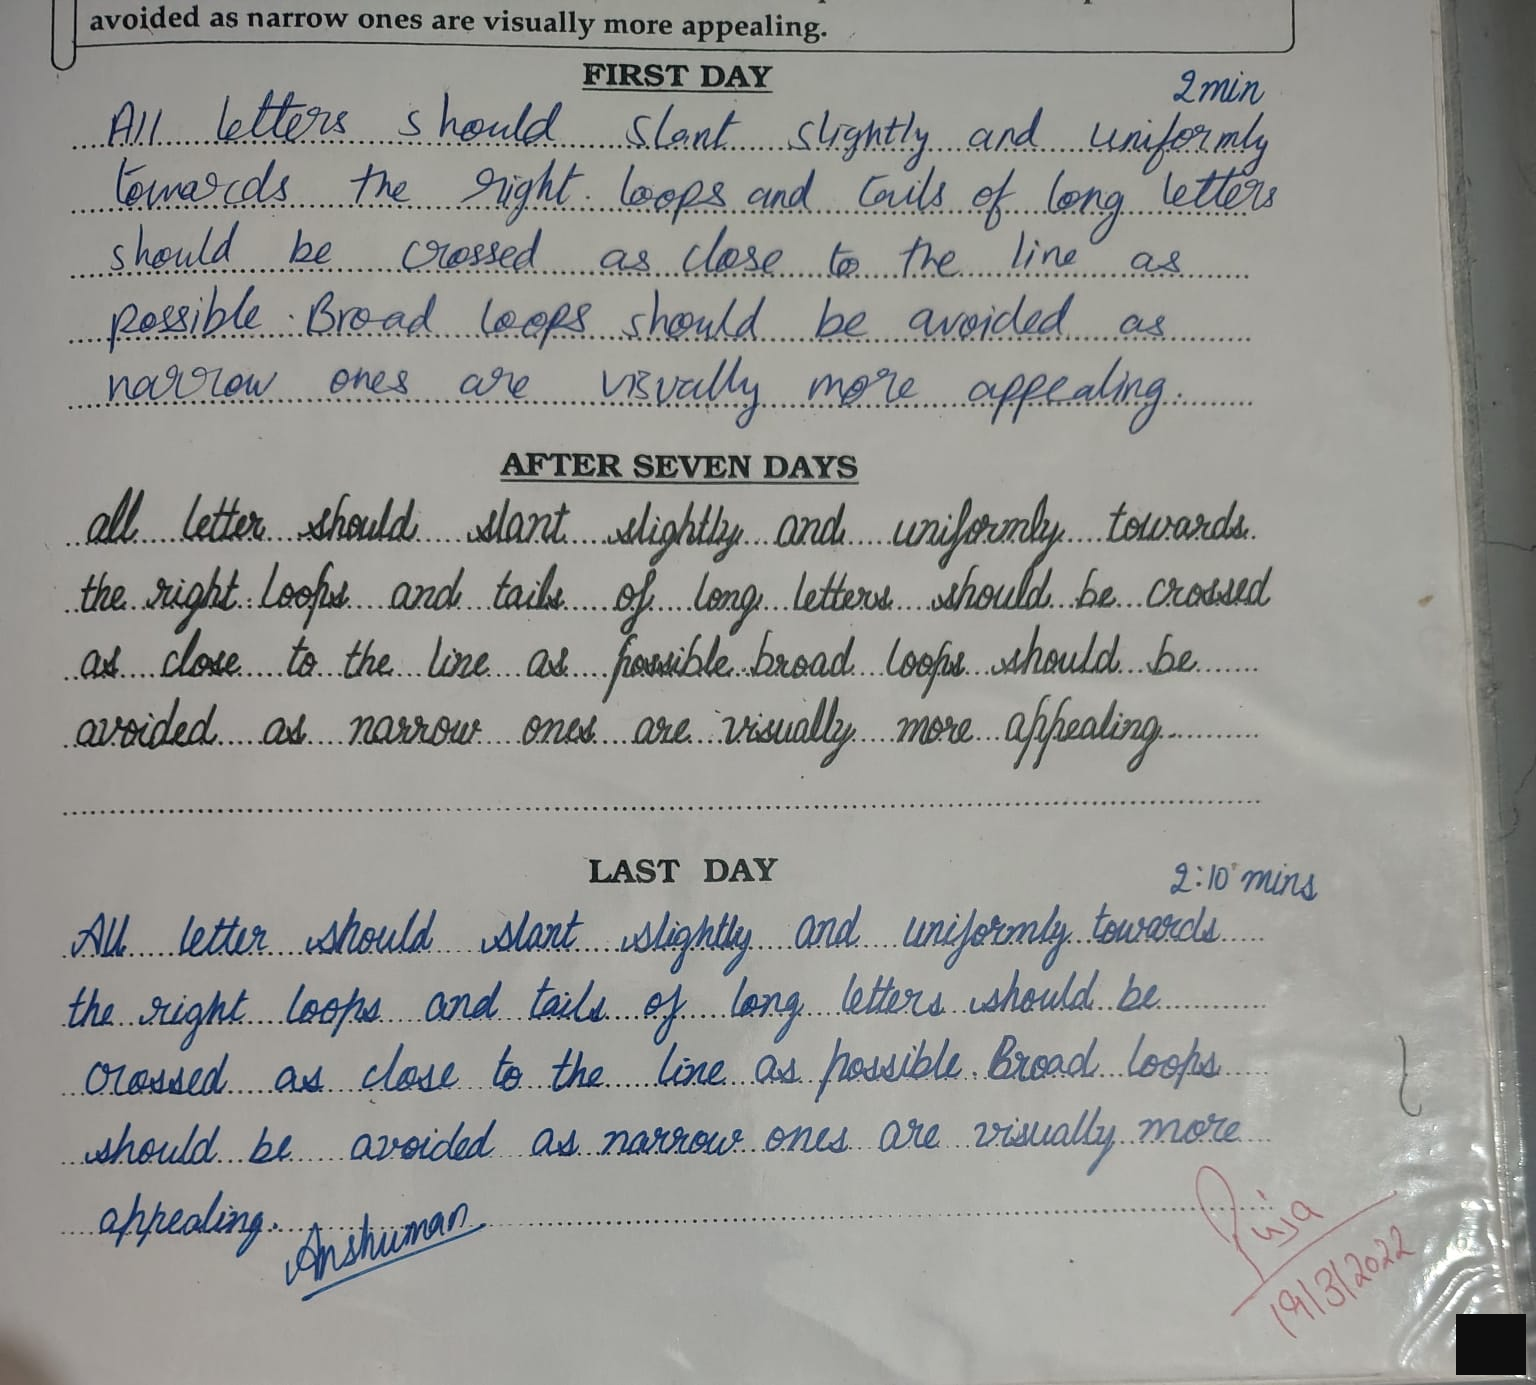 avoided as narrow ones are visually more appealing.
FIRST DAY
2 min
All letters should slant slightly and uniformly
towards the right. loops and tails of long letters
should be crossed as close to the line as
possible. Broad loops should be avoided as
narrow ones are visually more appealing.
AFTER SEVEN DAYS
all letter should slant slightly and uniformly towards
the right. loops and tails of long letters should be crossed
as close to the line as possible. broad loops should be
avoided as narrow ones are visually more appealing.
LAST DAY
2:10 mins
All letter should slant slightly and uniformly towards
the right loops and tails of long letters should be
crossed as close to the line as possible. Broad loops
should be avoided as narrow ones are visually more
appealing.
Anshuman
Puja
19/3/2022